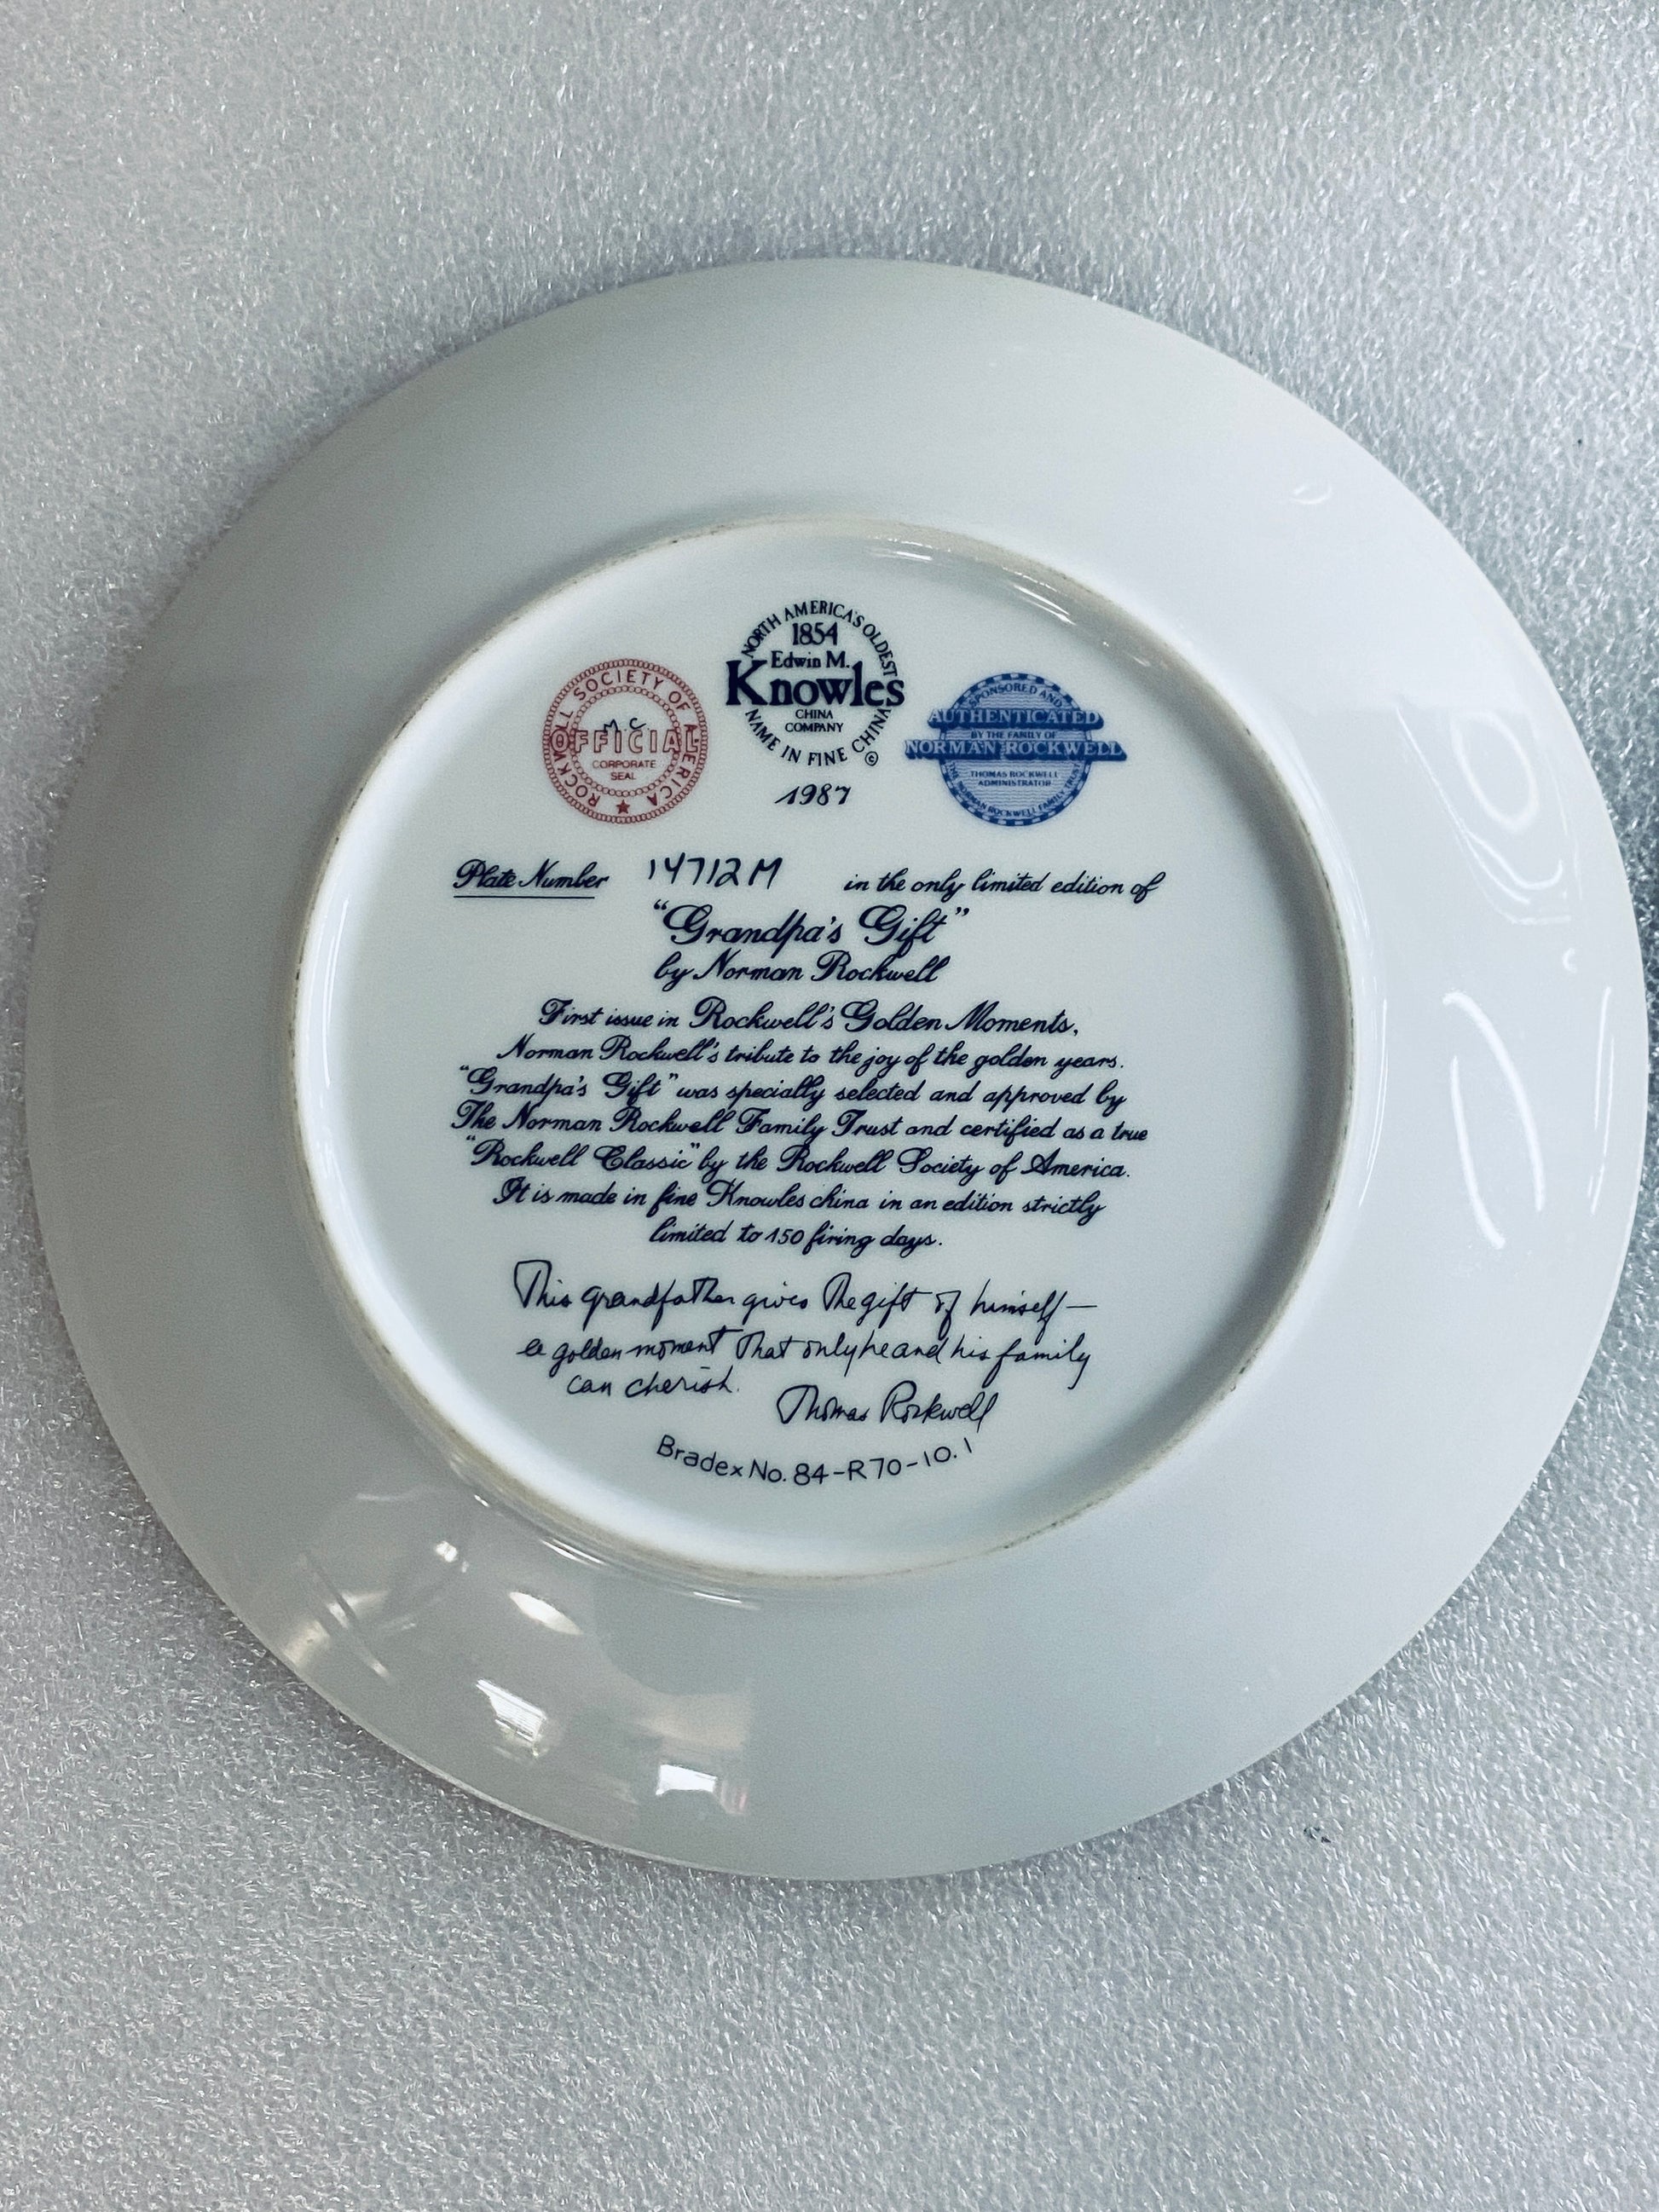 NORTH AMERICA'S OLDEST
1854
Edwin M.
Knowles
CHINA
COMPANY
NAME IN FINE CHINA ©
1987
ROCKWELL SOCIETY OF AMERICA
MC
OFFICIAL
CORPORATE
SEAL
SPONSORED AND
AUTHENTICATED
BY THE FAMILY OF
NORMAN ROCKWELL
THOMAS ROCKWELL
ADMINISTRATOR
THE NORMAN ROCKWELL FAMILY TRUST
Plate Number 14712M in the only limited edition of
"Grandpa's Gift"
by Norman Rockwell
First issue in Rockwell's Golden Moments,
Norman Rockwell's tribute to the joy of the golden years.
"Grandpa's Gift" was specially selected and approved by
The Norman Rockwell Family Trust and certified as a true
"Rockwell Classic" by the Rockwell Society of America.
It is made in fine Knowles china in an edition strictly
limited to 150 firing days.
This grandfather gives the gift of himself—
a golden moment that only he and his family
can cherish.
Thomas Rockwell
Bradex No. 84-R70-10.1